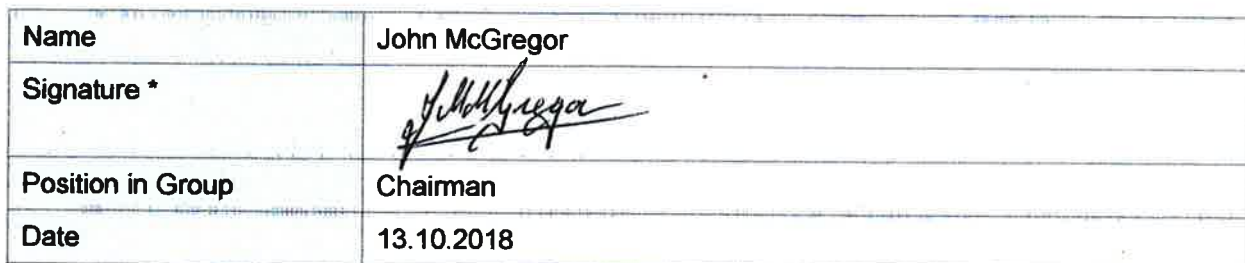 Name John McGregor
Signature * J McGregor
Position in Group Chairman
Date 13.10.2018